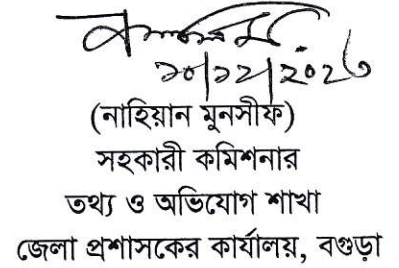 ১০/১২/২০২৩
(নাহিয়ান মুনসীফ)
সহকারী কমিশনার
তথ্য ও অভিযোগ শাখা
জেলা প্রশাসকের কার্যালয়, বগুড়া